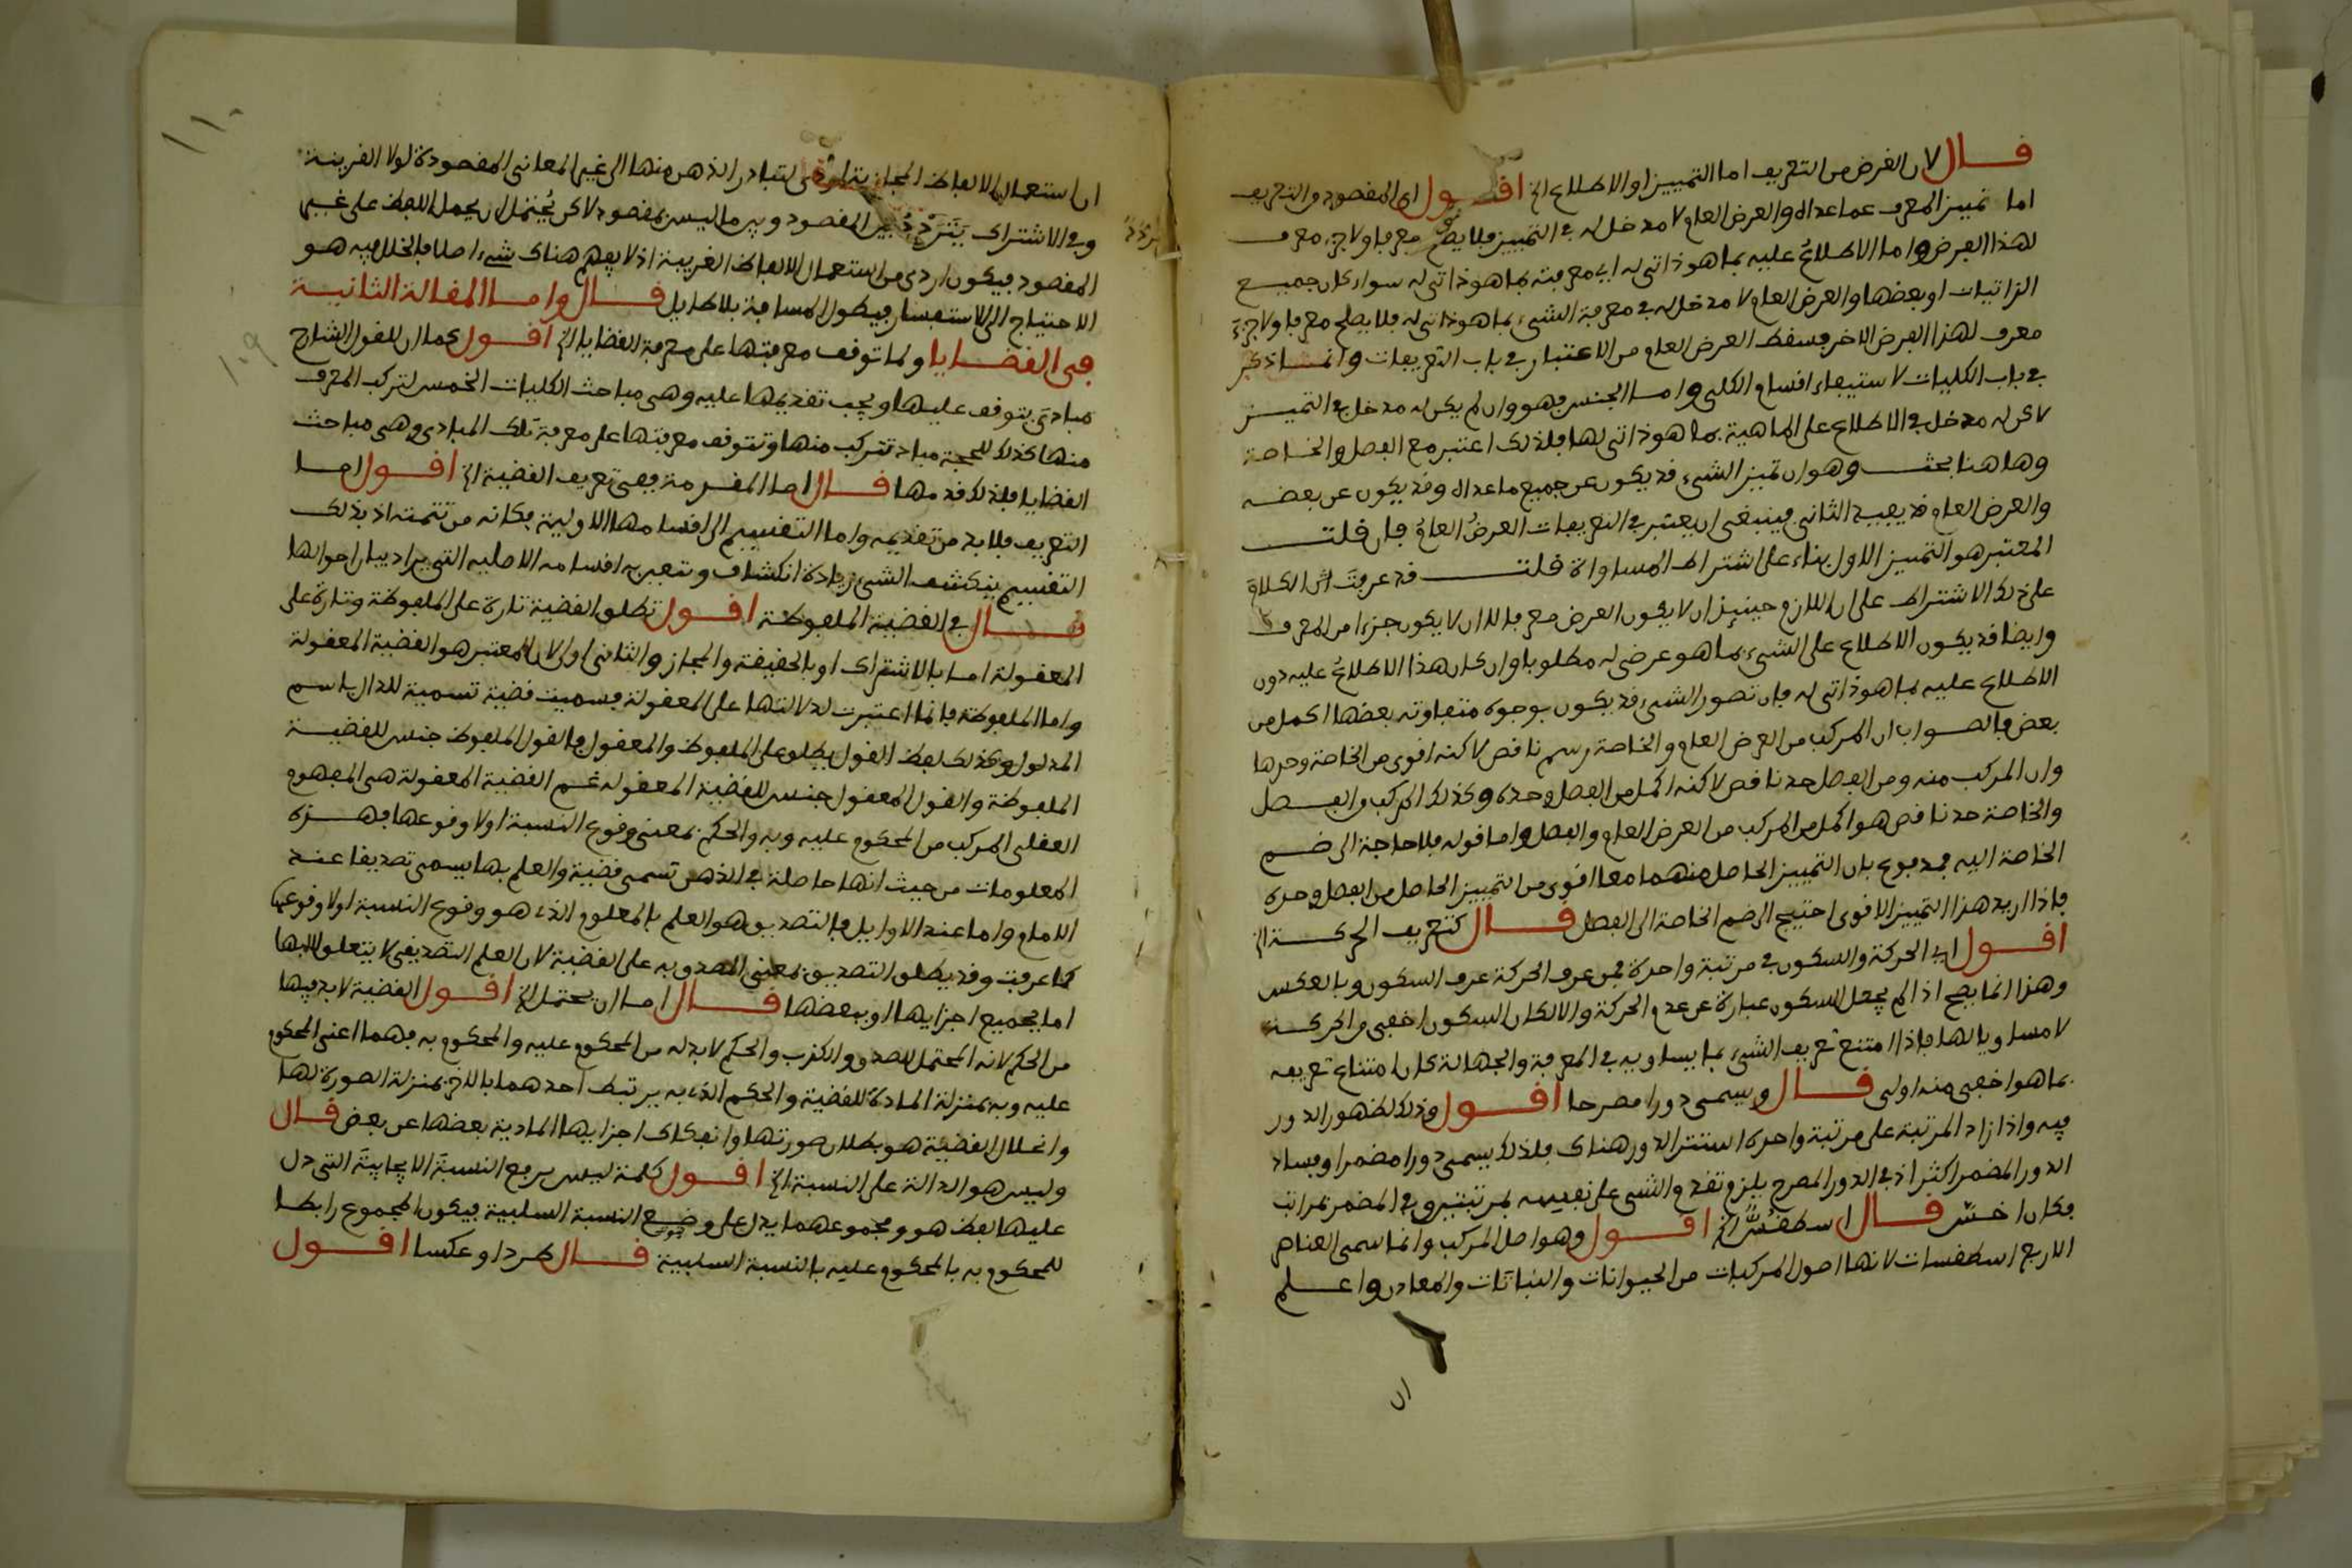 قال لان الغرض من التعريف اما التمييز او الاطلاع الخ اقول اي المقصود من التعريف
اما تمييز المعرف عما عداه والعرض العام لا مدخل له في التمييز فلا يصح معرفا ولا جزء معرف
لهذا الغرض واما الاطلاع عليه بما هو ذاتي له اي معرفته بما هو ذاتي له سواء كان جميع
الذاتيات او بعضها والعرض العام لا مدخل له في معرفة الشيء بما هو ذاتي له فلا يصلح معرفا ولا جزء
معرف لهذا الغرض الاخر فسقط العرض العام من الاعتبار في باب التعريفات وانما ذكر
في باب الكليات لاستيفاء اقسام الكلي واما الجنس فهو وان لم يكن له مدخل في التمييز
لاكن له مدخل في الاطلاع على الماهية بما هو ذاتي لها فلذلك اعتبر مع الفصل والخاصة
وهاهنا بحث وهو ان تمييز الشيء قد يكون عن جميع ما عداه وقد يكون عن بعضه
والعرض العام قد يفيد الثاني فينبغي ان يعتبر في التعريفات العرض العام فان قلت
المعتبر هو التمييز الاول بناء على اشتراط المساواة قلت قد عرفت ان الكلام
على ذلك الاشتراط على ان اللازم حينئذ ان لا يكون العرض معرفا لا ان لا يكون جزءا من المعرف
وايضا قد يكون الاطلاع على الشيء بما هو عرضي له مطلوبا وان كان هذا الاطلاع عليه دون
الاطلاع عليه بما هو ذاتي له فان تصور الشيء قد يكون بوجوه متفاوتة بعضها اكمل من
بعض فالصواب ان المركب من العرض العام والخاصة رسم ناقص لاكنه اقوى من الخاصة وحدها
وان المركب منه ومن الفصل حد ناقص لاكنه اكمل من الفصل وحده وكذلك المركب من الفصل
والخاصة حد ناقص هو اكمل من المركب من العرض العام والفصل واما قوله فلا حاجة الى ضم
الخاصة اليه فمدفوع بان التمييز الحاصل منهما معا اقوى من التمييز الحاصل من الفصل وحده
فاذا اريد هذا التمييز الاقوى احتيج الى ضم الخاصة الى الفصل قال كتعريف الحركة الخ
اقول اي الحركة والسكون في مرتبة واحدة فمن عرف الحركة عرف السكون وبالعكس
وهذا انما يصح اذا لم يجعل السكون عبارة عن عدم الحركة والا لكان السكون اخفى من الحركة
لا مساويا لها فاذا امتنع تعريف الشيء بما يساويه في المعرفة والجهالة كان امتناع تعريفه
بما هو اخفى منه اولى قال ويسمى دورا مصرحا اقول وذلك لظهور الدور
فيه واذا زاد المرتبة على مرتبة واحدة استتر الدور هناك فلذلك يسمى دورا مضمرا وفساد
الدور المضمر اكثر اذ في الدور المصرح يلزم تقدم الشيء على نفسه بمرتبتين وفي المضمر بمراتب
فكان اخس قال اسطقس الخ اقول وهو اصل المركب وانما سمى العناصر
الاربع اسطقسات لانها اصول المركبات من الحيوانات والنباتات والمعادن واعلم
ان
١١٠
١٠٩
ان استعمال الالفاظ المجازية لتبادر الذهن منها الى غير المعاني المقصودة لولا القرينة
وفي الاشتراك يتردد بين المقصود وبين ما ليس بمقصود لاكن يحتمل ان يحمل اللفظ على غير
المقصود فيكون اردى من استعمال الالفاظ الغريبة اذ لا يفهم هناك شيء اصلا فالخلل فيه هو
الاحتياج الى الاستفسار فيطول المسافة بلا طايل قال واما المقالة الثانية
ففي القضايا ولما توقف معرفتها على معرفة القضايا الخ اقول كما ان للقول الشارح
مبادي يتوقف عليها ويجب تقديمها عليه وهي مباحث الكليات الخمس لتركب المعرف
منها كذلك للحجة مباد تتركب منها وتتوقف معرفتها على معرفة تلك المبادي وهي مباحث
القضايا فلذلك قدمها قال اما المقدمة ففي تعريف القضية الخ اقول اما
التعريف فلا بد من تقديمه واما التقسيم الى اقسامها الاولية فكانه من تتمته اذ بذلك
التقسيم ينكشف الشيء زيادة انكشاف وتعبر به اقسامه الاصلية التي يراد بيان احوالها
قال في القضية الملفوظة اقول تطلق القضية تارة على الملفوظة وتارة على
المعقولة اما بالاشتراك او بالحقيقة والمجاز والثاني اولى لان المعتبر هو القضية المعقولة
واما الملفوظة فانما اعتبرت لدلالتها على المعقولة فسميت قضية تسمية للدال باسم
المدلول وكذلك لفظ القول يطلق على الملفوظ والمعقول فالقول الملفوظ جنس للقضية
الملفوظة والقول المعقول جنس للقضية المعقوله ثم القضية المعقولة هي المفهوم
العقلي المركب من المحكوم عليه وبه والحكم بمعنى وقوع النسبة اولا وقوعها فهذه
المعلومات من حيث انها حاصلة في الذهن تسمى قضية والعلم بها يسمى تصديقا عند
الامام واما عند الاوايل فالتصديق هو العلم بالمعلوم الذي هو وقوع النسبة اولا وقوعها
كما عرفت وقد يطلق التصديق بمعنى المصدق به على القضية لان العلم التصديقي لا يتعلق الا بها
اما بجميع اجزايها او ببعضها قال اما ان يحتمل الخ اقول القضية لا بد فيها
من الحكم لانه المحتمل للصدق والكذب والحكم لا بد له من المحكوم عليه والمحكوم به فهما اعني المحكوم
عليه وبه بمنزلة المادة للقضية والحكم الذي به يرتبط احدهما بالاخر بمنزلة الصورة لها
وانحلال القضية هو بطلان صورتها وانفكاك اجزايها المادية بعضها عن بعض قال
وليس هو الدالة على النسبة الخ اقول كلمة ليس يرفع النسبة الايجابية التي دل
عليها لفظ هو ومجموعهما يدل على وضع النسبة السلبية فيكون المجموع رابطا
للمحكوم به بالمحكوم عليه بالنسبة السلبية قال طردا وعكسا اقول